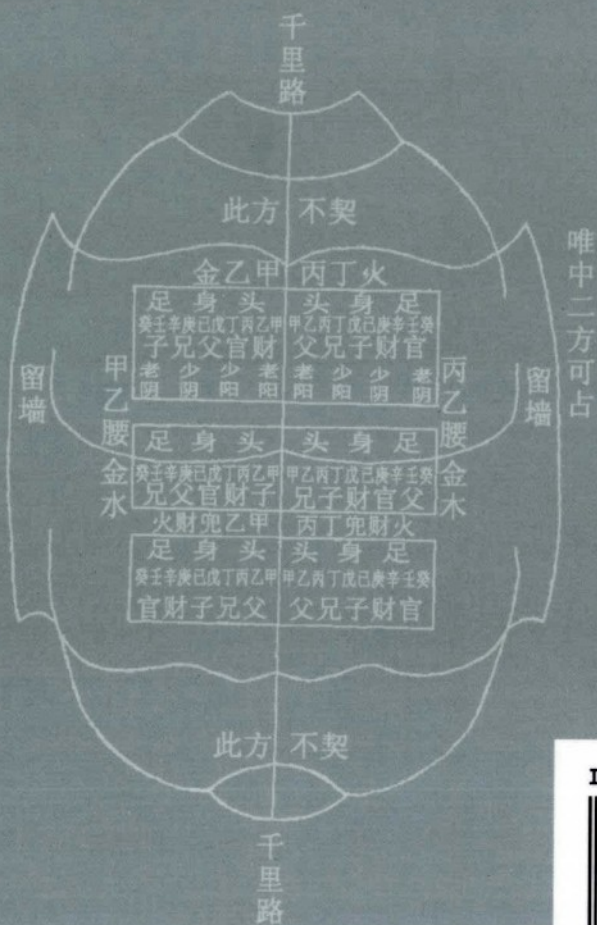 千里路
此方 不契
唯中二方可占
金乙甲 丙丁火
足 身 头 头 身 足
癸壬辛庚己戊丁丙乙甲 甲乙丙丁戊己庚辛壬癸
子兄父官财 父子兄财官
老阴 少阴 少阳 老阳 老阳 少阳 少阴 老阴
留墙
甲乙腰金水
丙乙腰金木
留墙
足 身 头 头 身 足
癸壬辛庚己戊丁丙乙甲 甲乙丙丁戊己庚辛壬癸
兄父官财子 兄子财官父
火财兜乙甲 丙丁兜财火
足 身 头 头 身 足
癸壬辛庚己戊丁丙乙甲 甲乙丙丁戊己庚辛壬癸
官财子兄父 父兄子财官
此方 不契
千里路